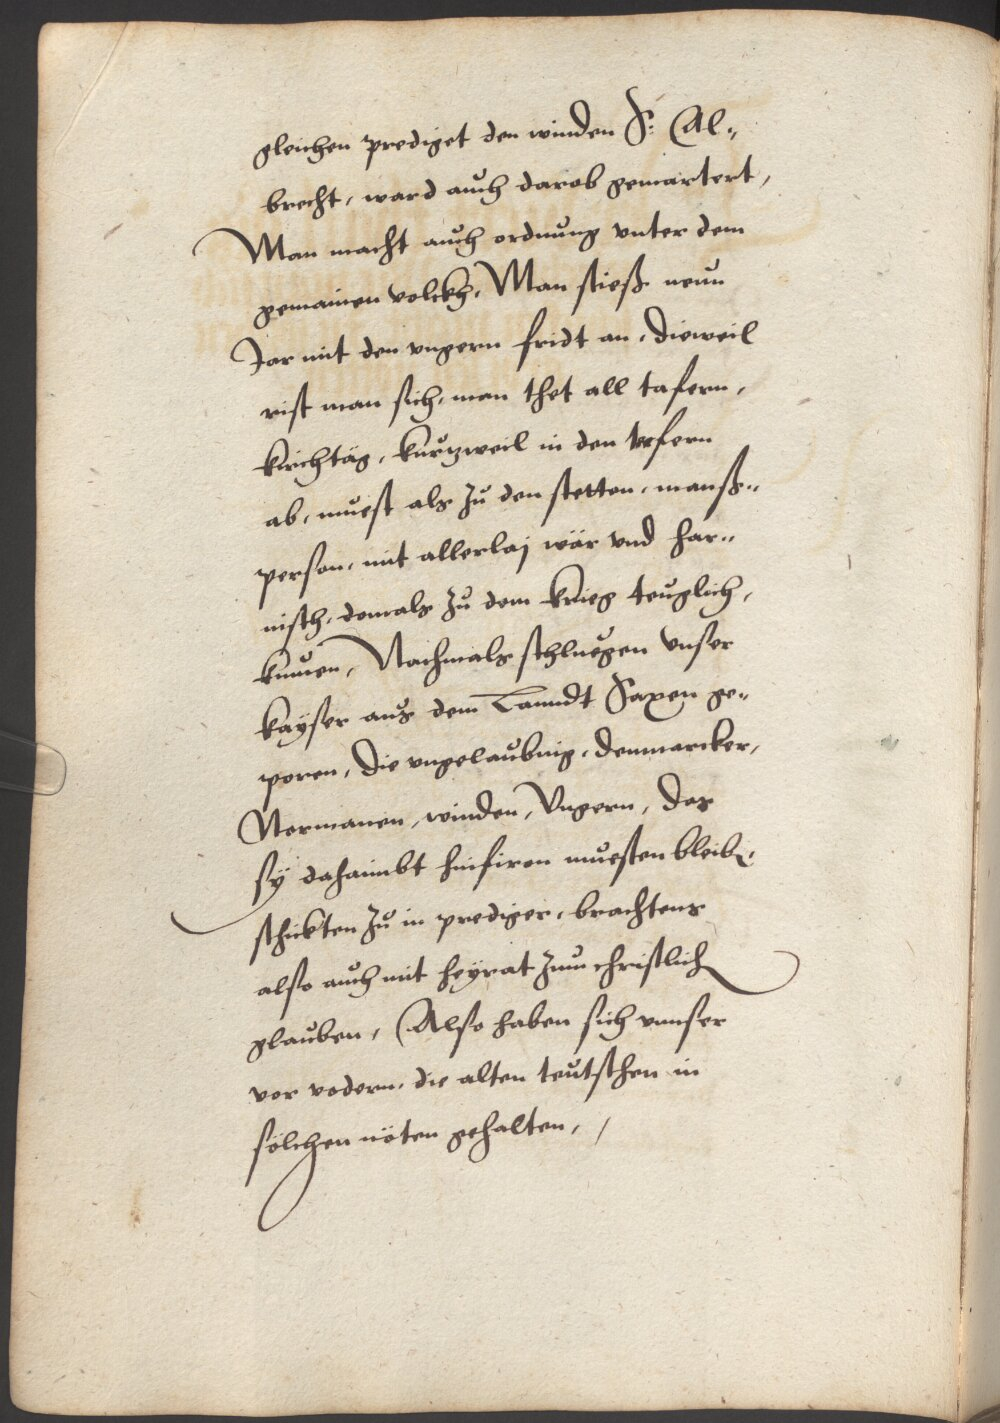 gleichen prediget den winden S: Al„
brecht, ward auch darob gemartert,
Man macht auch ordnung vnter dem
gemainen volckh, Man stieß neun
Jar mit den vngern fridt an, dieweil
rist man sich, man thet all tafern,
kirchtäg, kurtzweil in den
ab, muest als zu den stetten, manß„
person, mit allerlaj wör vnd har„
nisch, domals zu dem krieg teuglich,
kumen, Nachmals schluegen vnser
kayser aus dem Lanndt Saxen ge„
poren, die vngelaubnig, denmarcker,
Normanen, winden, Vngern, das
sÿ dahaimbt hinfiron muesten bleib̄,
schickten zu in prediger, brachtens
also auch mit heyrat zum christlich
glauben, Also haben sich vnnser
vor vodern, die alten teutschen in
sölchen nöten gehalten, /